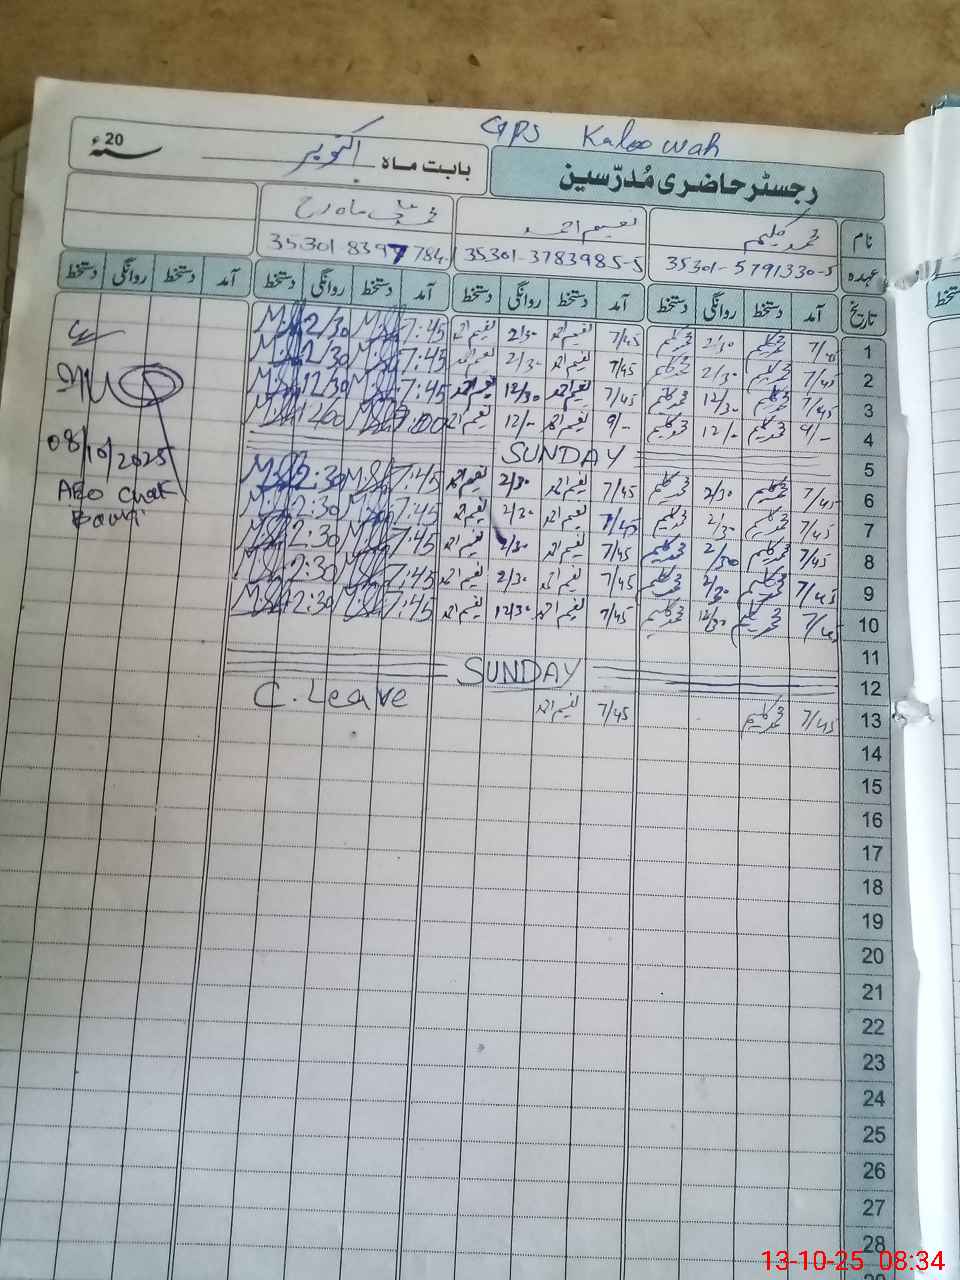 GPS Kaloowah
رجسٹر حاضری مُدرّسین
بابت ماہ اکتوبر 20 سنہء
نام محمد کلیم نعیم احمد
عہدہ 35301-5791330-5 35301-3783985-5 35301-8397784
تاریخ آمد دستخط روانگی دستخط آمد دستخط روانگی دستخط آمد دستخط روانگی دستخط آمد دستخط روانگی دستخط
1 7/45 محمد کلیم 2/30 محمد کلیم 7/45 نعیم احمد 2/30 نعیم احمد 7:45 2/30
2 7/45 محمد کلیم 2/30 محمد کلیم 7/45 نعیم احمد 2/30 نعیم احمد 7:45 2/30
3 7/45 محمد کلیم 12/30 محمد کلیم 7/45 نعیم احمد 12/30 نعیم احمد 7:45 12/30
4 9/- محمد کلیم 12/- محمد کلیم 9/- نعیم احمد 12/- نعیم احمد
5 SUNDAY
6 7/45 محمد کلیم 2/30 محمد کلیم 7/45 نعیم احمد 2/30 نعیم احمد 7:45 2:30
7 7/45 محمد کلیم 2/30 محمد کلیم 7/45 نعیم احمد 2/30 نعیم احمد 7:45 2:30
8 7/45 محمد کلیم 2/30 محمد کلیم 7/45 نعیم احمد 2/30 نعیم احمد 7:45 2:30
9 7/45 محمد کلیم 2/30 محمد کلیم 7/45 نعیم احمد 2/30 نعیم احمد 7:45 2:30
10 7/45 محمد کلیم 12/30 محمد کلیم 7/45 نعیم احمد 12/30 نعیم احمد 7:45 2:30
11
12 SUNDAY
13 7/45 محمد کلیم 7/45 نعیم احمد C. Leave
14
15
16
17
18
19
20
21
22
23
24
25
26
27
28
08/10/2025
AEO Chak
دستخط
13-10-25 08:34